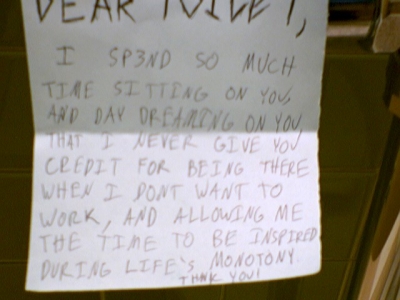 DEAR TOILET,
I SP3ND SO MUCH
TIME SITTING ON YOU,
AND DAY DREAMING ON YOU
THAT I NEVER GIVE YOU
CREDIT FOR BEING THERE
WHEN I DONT WANT TO
WORK, AND ALLOWING ME
THE TIME TO BE INSPIRED
DURING LIFE'S MONOTONY.
THNK YOU!